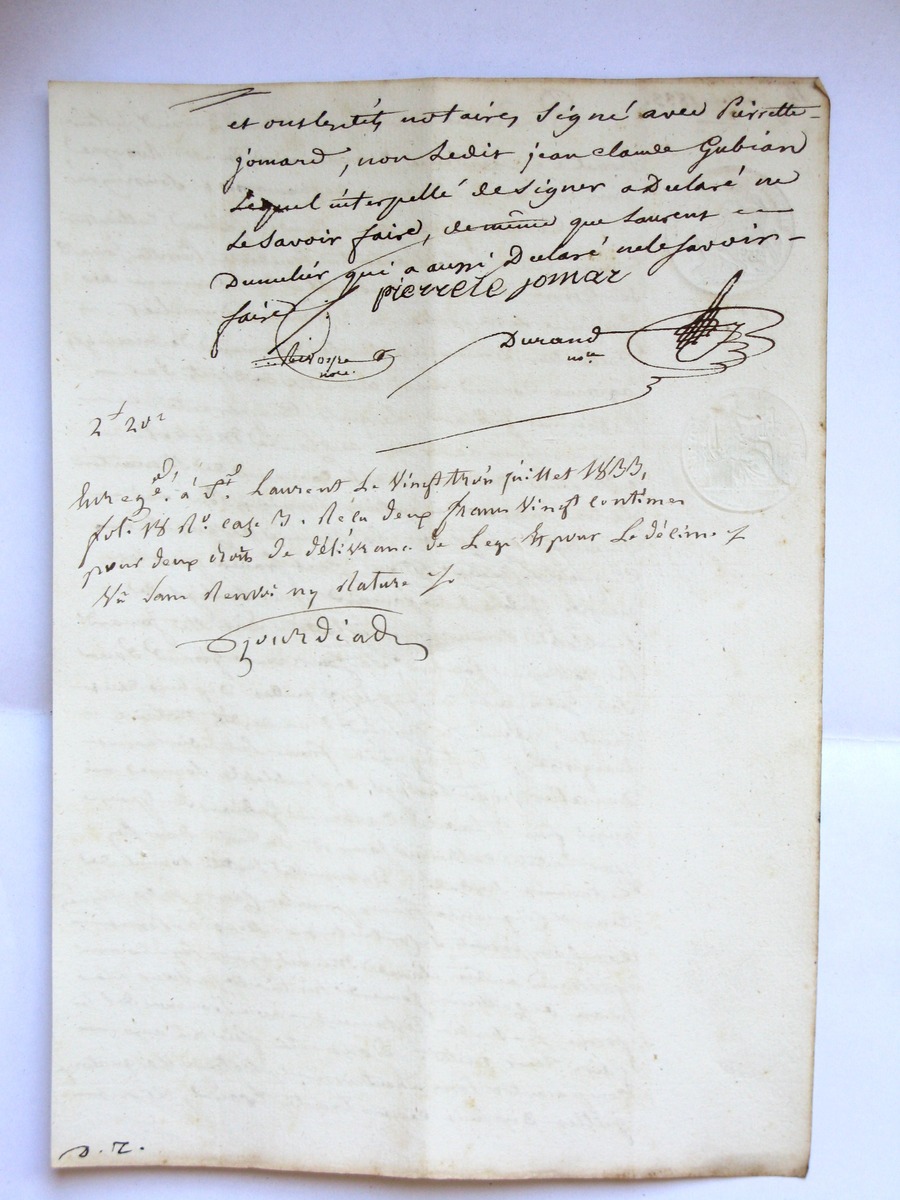 et ont lesdits notaires signé avec Pierrette
jomard, non Ledit jean claude Gubian
Lequel interpellé de signer a Declaré ne
Le savoir faire, de même que Laurent
Dumulier qui a aussi Declaré ne le savoir
faire
pierrete jomar
Durand
nore
nore.
2f 20c
Enregé. à St. Laurent Le vingt trois juillet 1833,
fol. 18 Ro. case 3. Recu deux francs vingt centimes
pour deux droits de délivrance de Legs & pour Le décime
Vu sans Renvoi ny Rature
D. T.